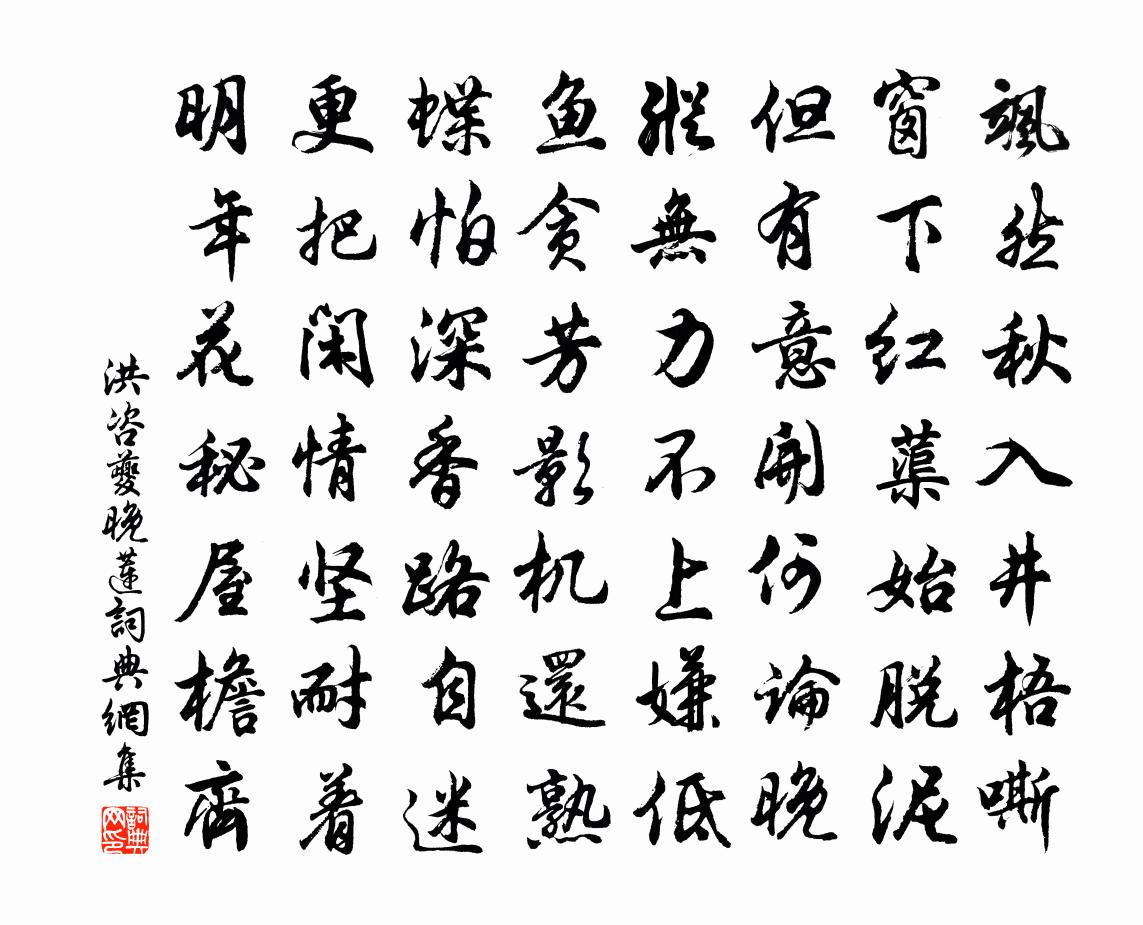 颯然秋入井梧嘶
窗下红蕖始脱泥
但有意開何論晚
縱無力不上嫌低
鱼贪芳影机還熟
蝶怕深香路自迷
更把闲情坚耐着
明年花秘屋檐齊
洪咨夔晚蓮詞典網集
詞典网印